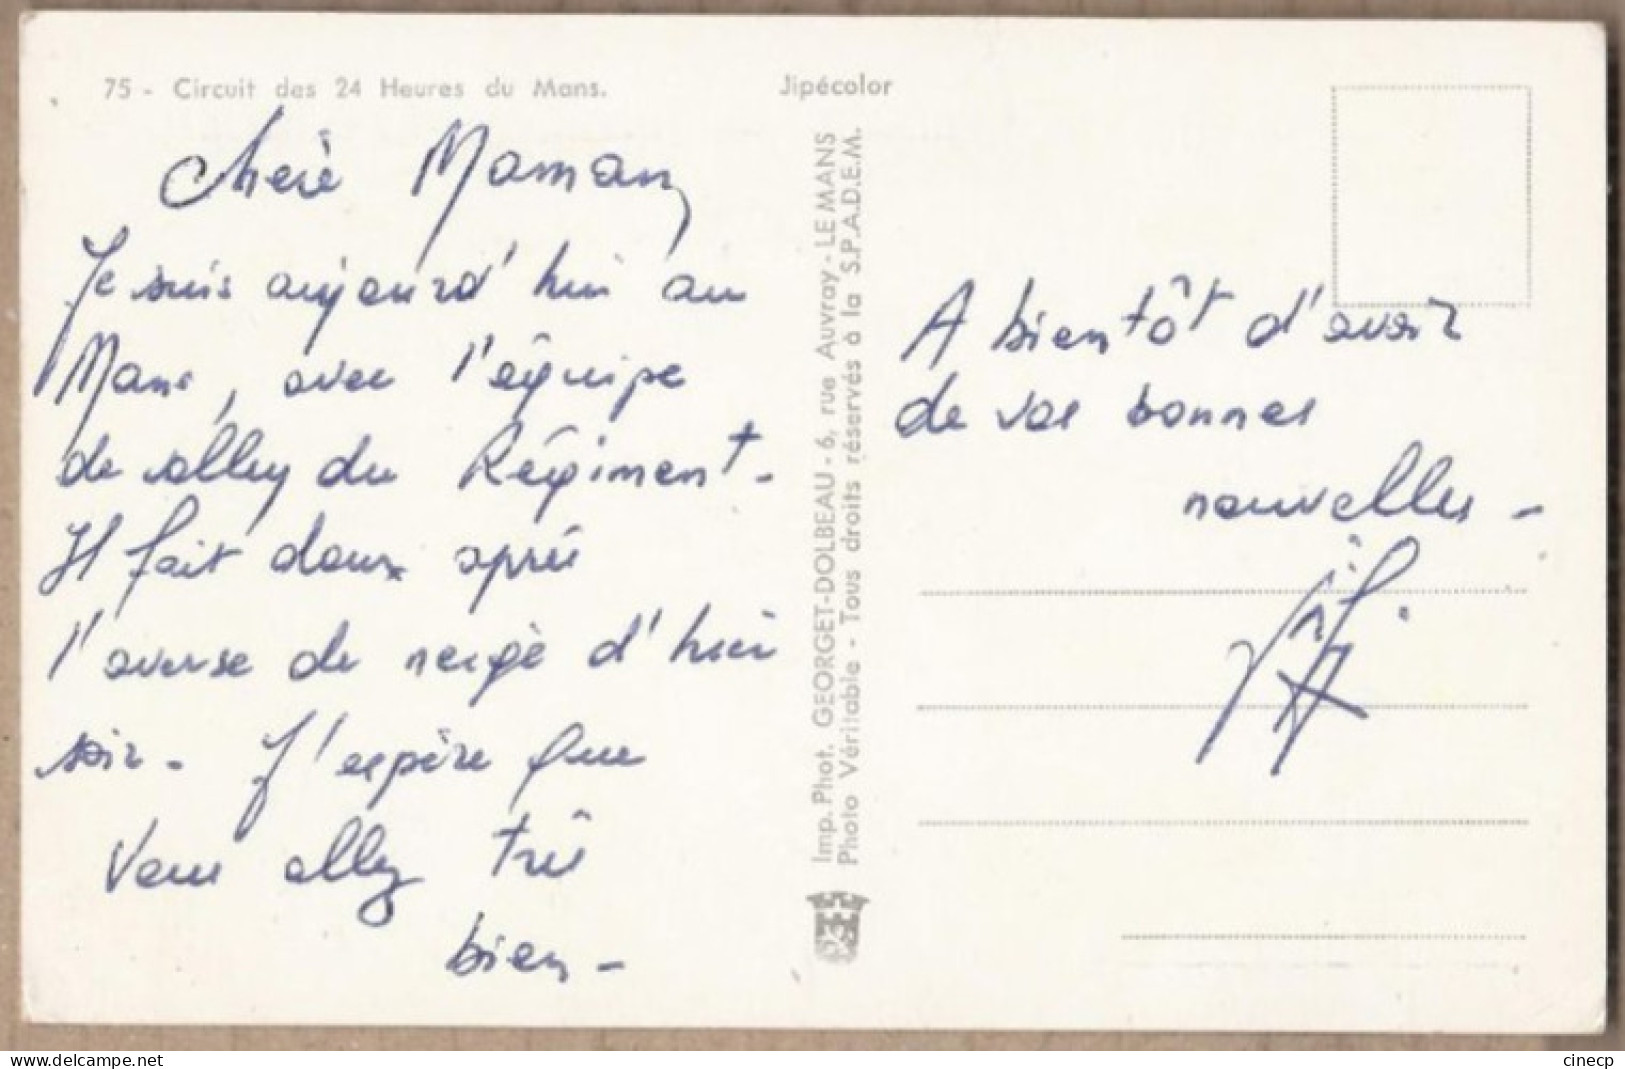 75 - Circuit des 24 Heures du Mans.
Jipécolor
Chère Maman
Je suis aujourd'hui au
Mans, avec l'équipe
de volley du Régiment -
Il fait doux après
l'averse de neige d'hier
soir - J'espère que
vous allez très
bien -
Imp. Phot. GEORGET-DOLBEAU - 6, rue Auvray - LE MANS
Photo Véritable - Tous droits réservés à la S.P.A.D.E.M.
A bientôt d'avoir
de vos bonnes
nouvelles -
cinecp